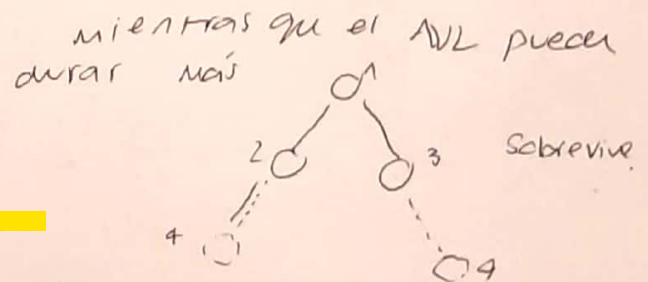 mientras que el AVL pueden
durar más
1
2
3
Sobrevive
4
4